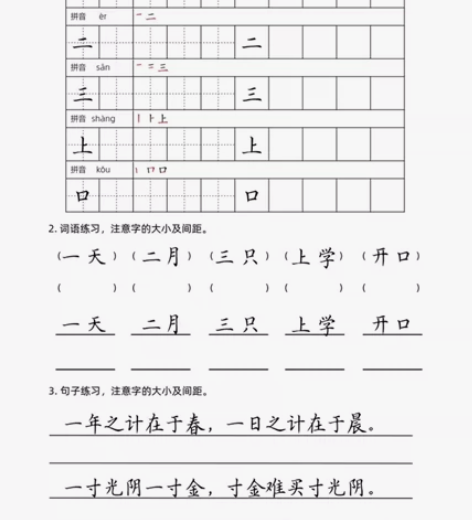 拼音 èr 一 二
二 二
拼音 sān 一 二 三
三 三
拼音 shàng 丨 卜 上
上 上
拼音 kǒu 丨 口 口
口 口
2. 词语练习，注意字的大小及间距。
（一天）（二月）（三只）（上学）（开口）
（ ）（ ）（ ）（ ）（ ）
一天 二月 三只 上学 开口
3. 句子练习，注意字的大小及间距。
一年之计在于春，一日之计在于晨。
一寸光阴一寸金，寸金难买寸光阴。